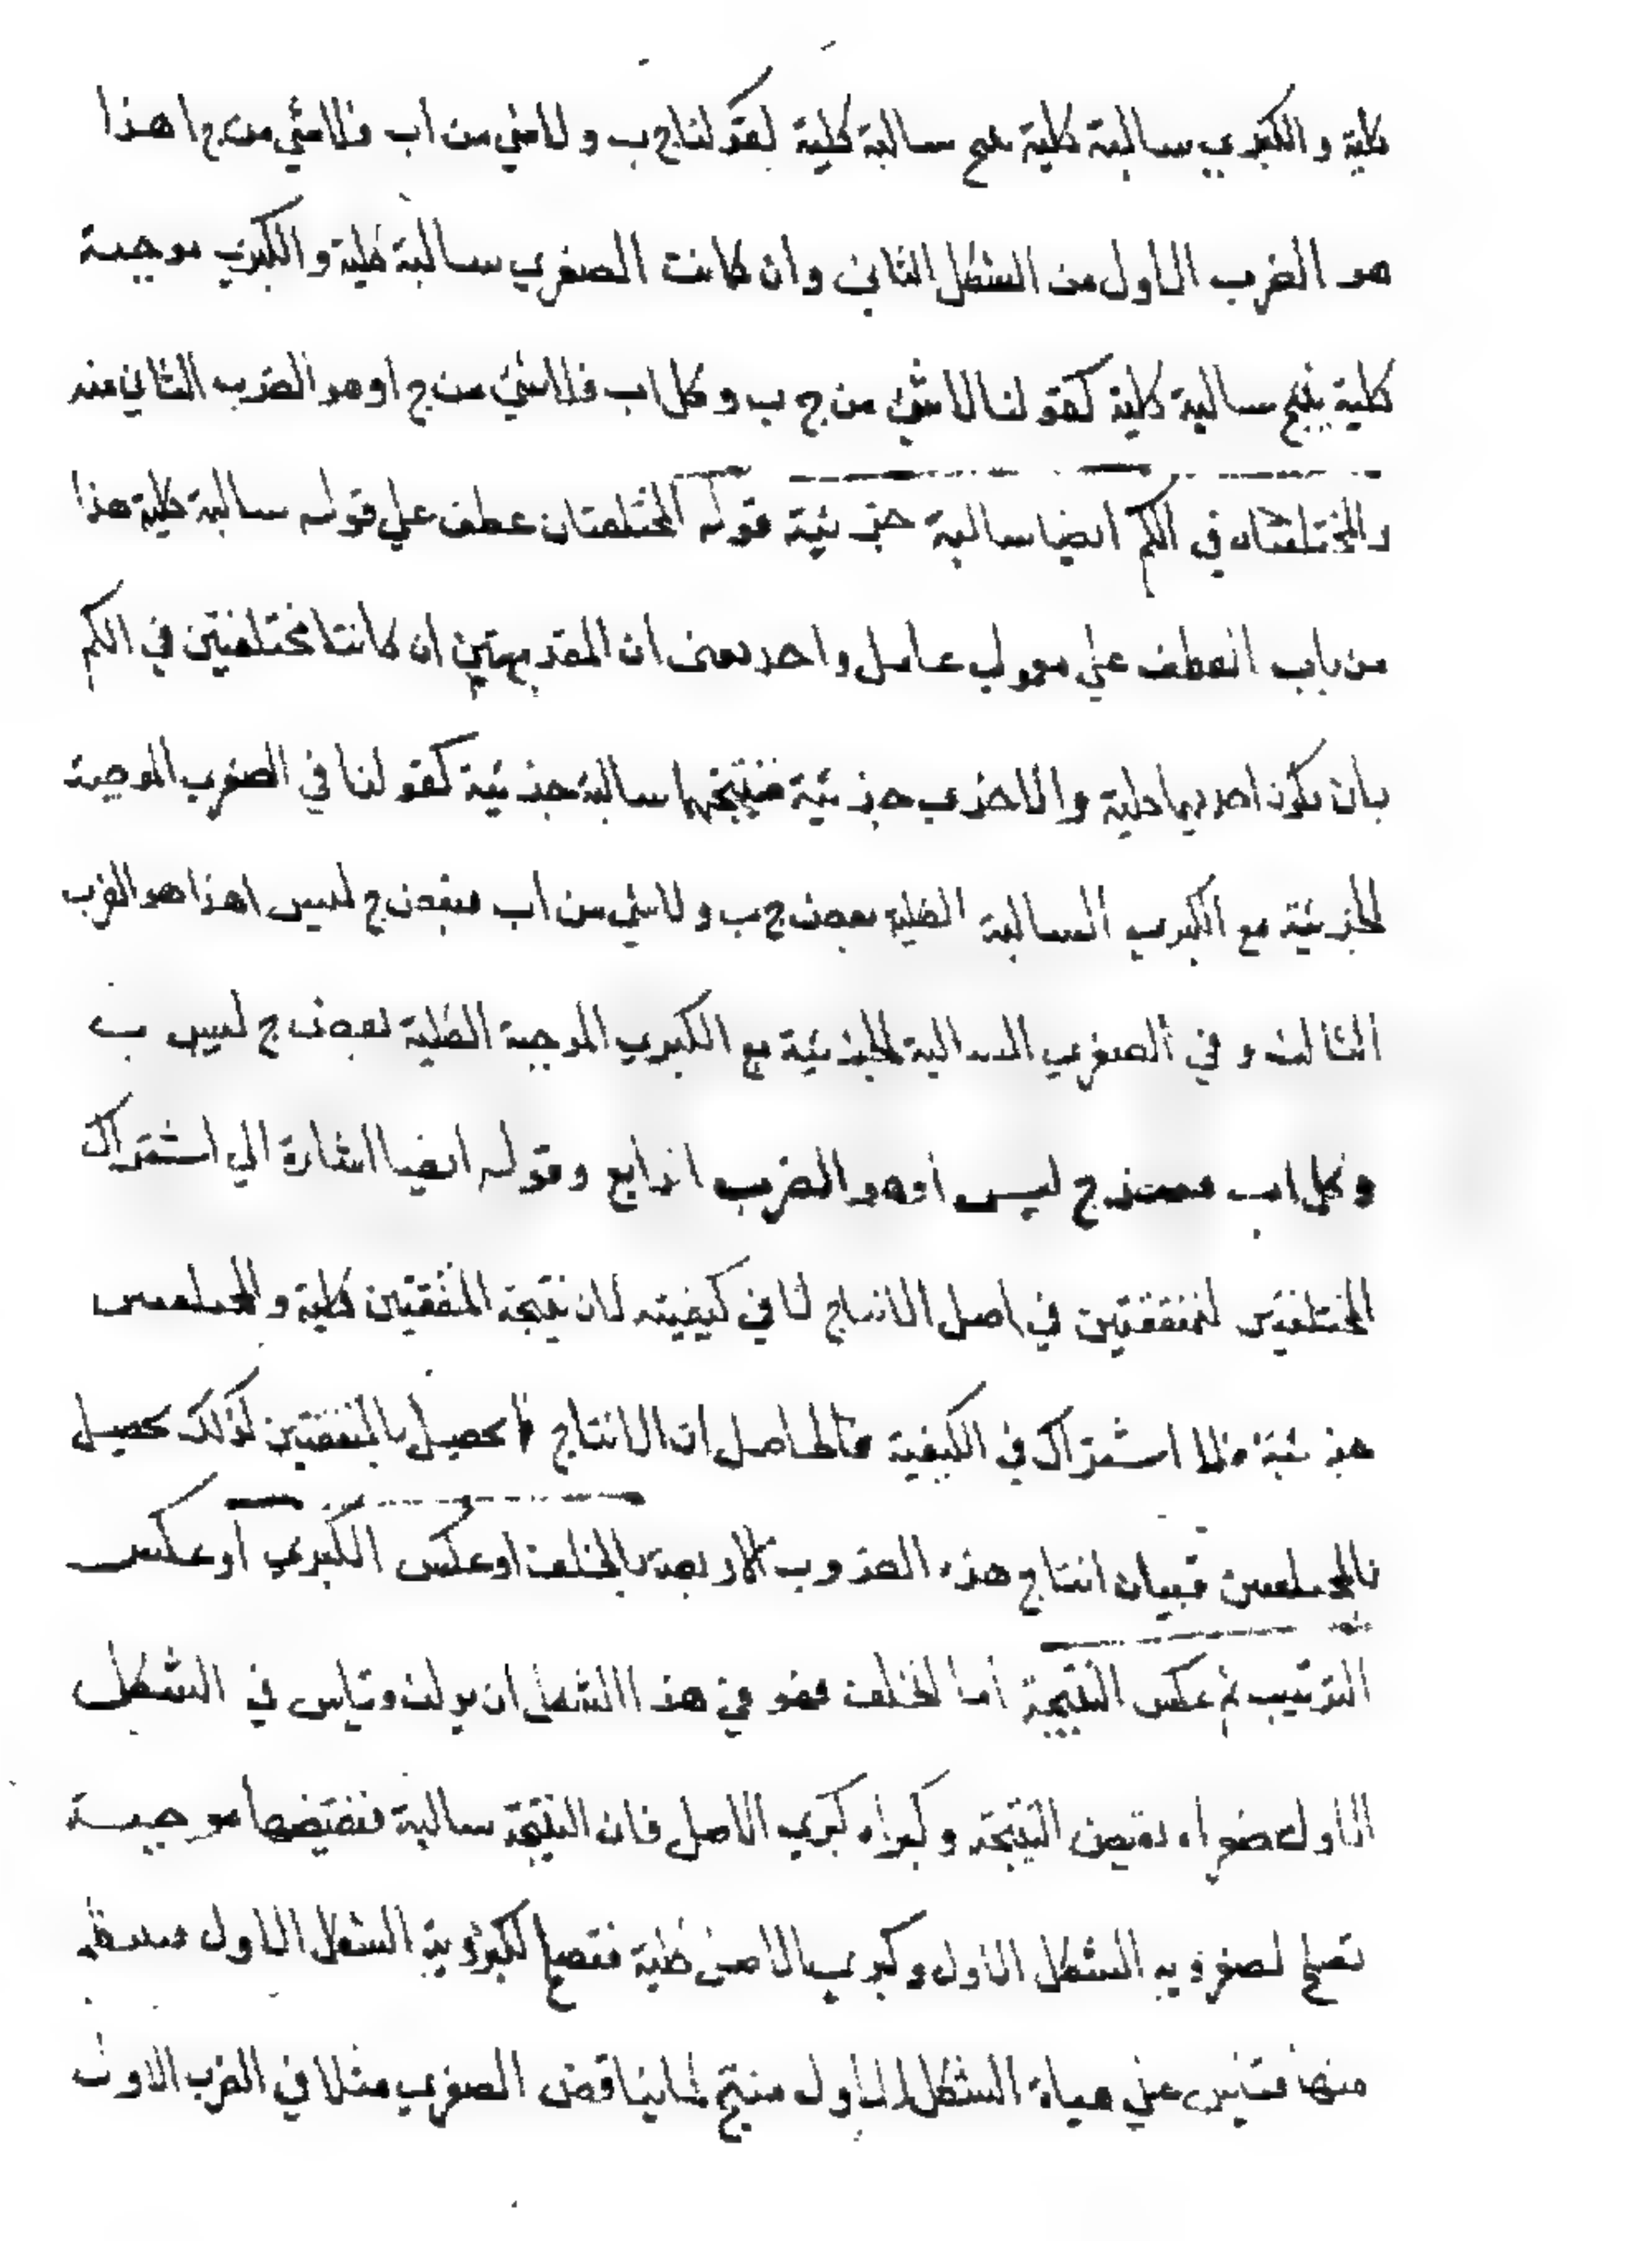 كلية والكبري سالبة كلية ينتج سالبة كلية كقولنا ج ب ولا شي من ا ب فلا شي من ج ا هذا
هو الضرب الاول من الشكل الثاني وان كانت الصغري سالبة كلية والكبري موجبة
كلية ينتج سالبة كلية كقولنا لا شي من ج ب وكل ا ب فلا شي من ج ا وهو الضرب الثاني منه
والمختلفتان في الكم ايضا سالبة جزئية قوله المختلفتان عطف علي قوله سالبة كلية هذا
من باب العطف علي معمولي عامل واحد يعني ان المقدمتين ان كانتا مختلفتين في الكم
بان يكون احديهما كلية والاخري جزئية فنتيجتهما سالبة جزئية كقولنا في الصغري الموجبة
الجزئية مع الكبري السالبة الكلية بعض ج ب ولا شي من ا ب فبعض ج ليس ا هذا هو الضرب
الثالث وفي الصغري السالبة الجزئية مع الكبري الموجبة الكلية بعض ج ليس ب
وكل ا ب فبعض ج ليس ا وهو الضرب الرابع وقوله ايضا اشارة الي اشتراك
المختلفتين للمتفقتين في اصل الانتاج لا في كيفيته لان نتيجة المتفقتين كلية والمختلفتين
جزئية فلا اشتراك في الكيفية فالحاصل ان الانتاج كما يحصل بالمتفقتين كذلك يحصل
بالمختلفتين فبيان انتاج هذه الضروب الاربعة بالخلف او عكس الكبري او عكس
الترتيب ثم عكس النتيجة اما الخلف فهو في هذا الشكل ان يولف قياس في الشكل
الاول صغراه نقيض النتيجة وكبراه كبري الاصل فان النتيجة سالبة فنقيضها موجبة
تصلح لصغروية الشكل الاول وكبري الاصل كلية فتصلح لكبروية الشكل الاول
منها قياس علي هياة الشكل الاول منتج لما يناقض الصغري مثلا في الضرب الاول